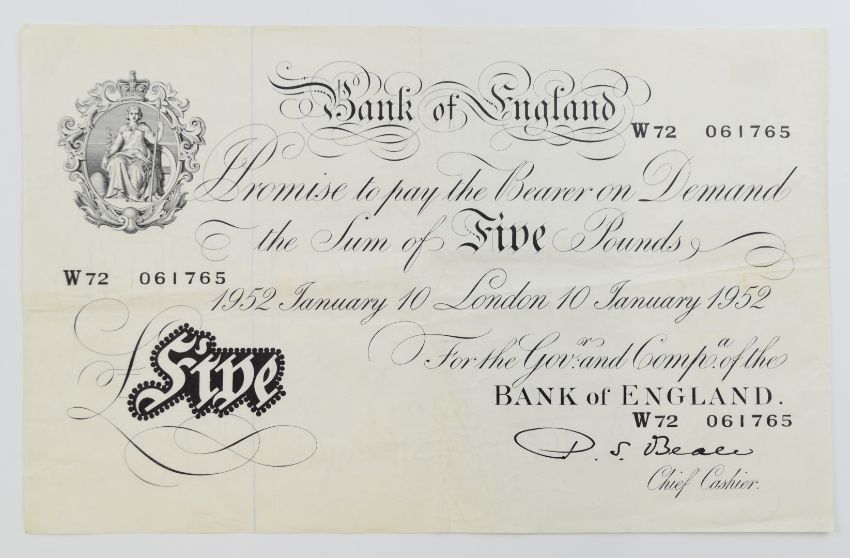 Bank of England
W72 061765
I Promise to pay the Bearer on Demand
the Sum of Five Pounds
W72 061765
1952 January 10 London 10 January 1952
£ Five
For the Govr. and Compa. of the
BANK of ENGLAND.
W72 061765
P. S. Beale
Chief Cashier.